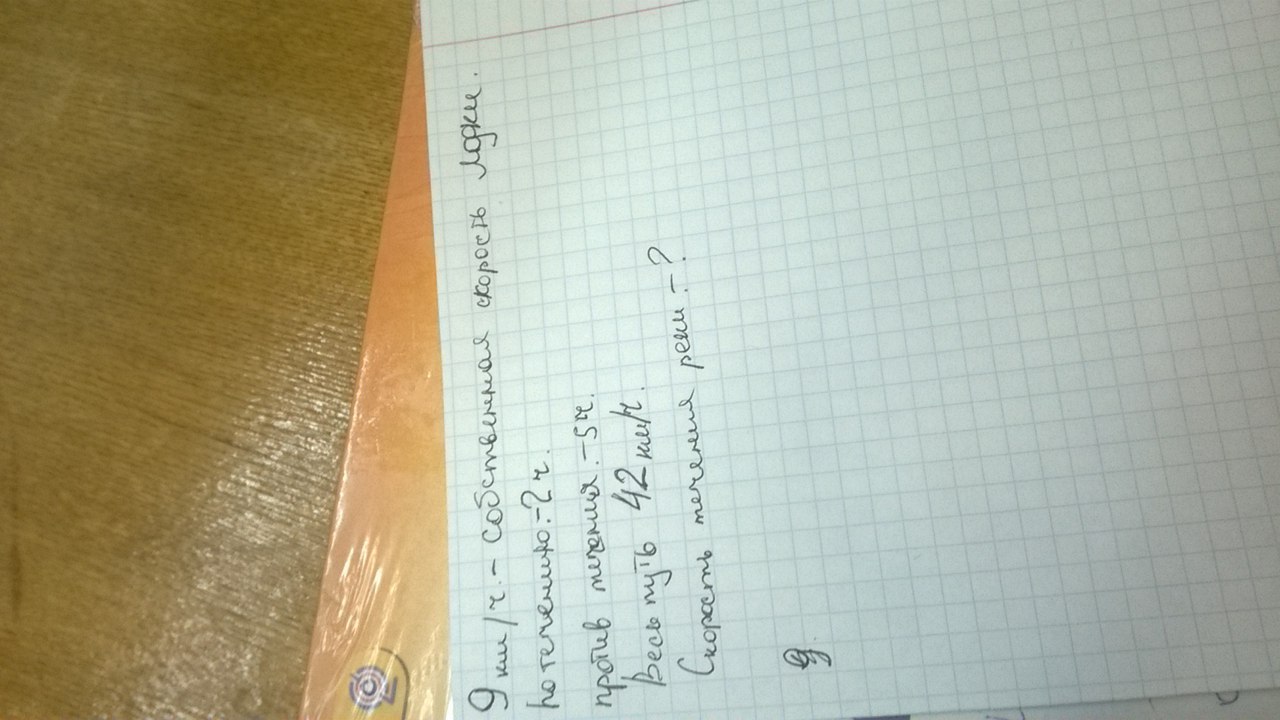 9 км/ч. - собственная скорость лодки.
по течению. - 2 ч.
против течения. - 5 ч.
Весь путь 42 км/ч.
Скорость течения реки - ?